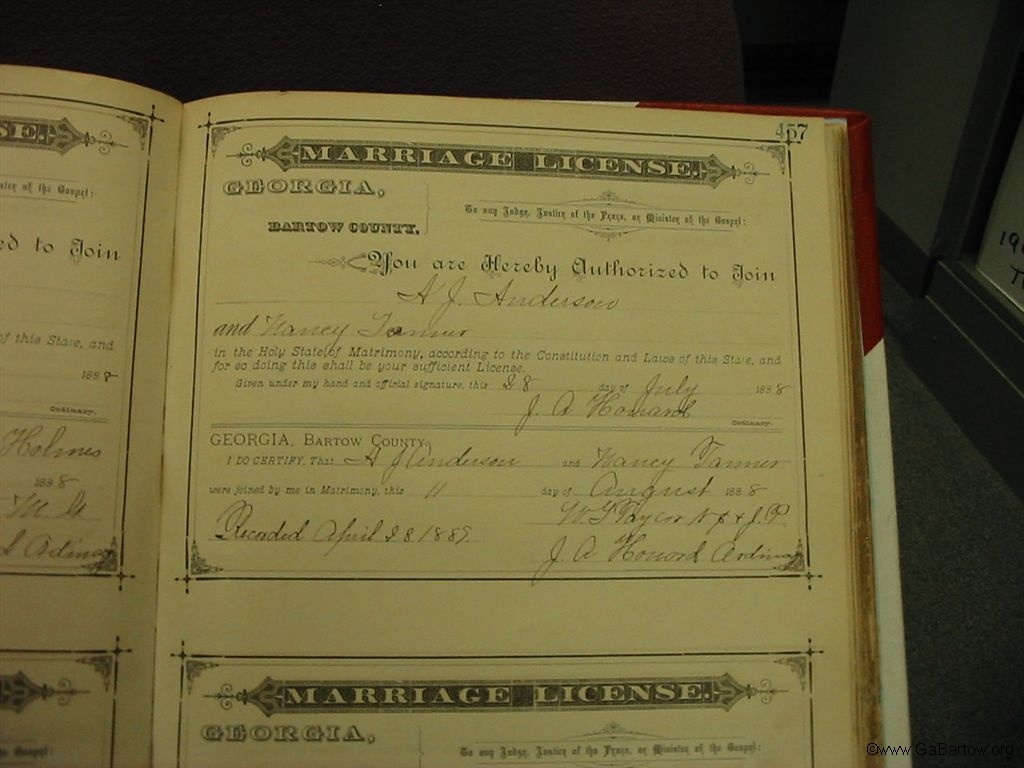 SE.
ister of the Gospel:
ed to Join
of this State, and
1888
Ordinary.
Holmes
1888
457
MARRIAGE LICENSE.
GEORGIA,
BARTOW COUNTY.
To any Judge, Justice of the Peace, or Minister of the Gospel:
You are Hereby Authorized to Join
A J. Anderson
and Nancy Tanner
in the Holy State of Matrimony, according to the Constitution and Laws of this State, and
for so doing this shall be your sufficient License.
Given under my hand and official signature, this 28 day of July 1888
J. A Howard
Ordinary.
GEORGIA, BARTOW COUNTY.
I DO CERTIFY, That A J Anderson and Nancy Tanner
were joined by me in Matrimony, this 11 day of August 1888
W. N P & J. P.
Recorded April 28 1889.
J. A Howard Ordinary
MARRIAGE LICENSE.
GEORGIA,
To any Judge, Justice of the Peace, or Minister of the Gospel:
©www.GaBartow.org